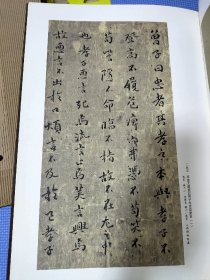 曾子曰忠者其孝之本與孝子不
登高不履危痺亦弗憑不苟笑不
苟訾隱不命臨不指故不在尤之中
也孝子惡言死焉流言止焉美言興焉
故惡言不出於口煩言不及於己孝子